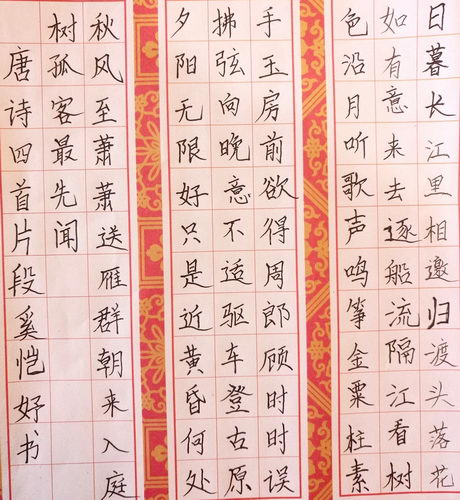 日暮长江里相邀归渡头落花
如有意来去逐船流隔江看树
色沿月听歌声鸣筝金粟柱素
手玉房前欲得周郎顾时时误
拂弦向晚意不适驱车登古原
夕阳无限好只是近黄昏何处
秋风至萧萧送雁群朝来入庭
树孤客最先闻
唐诗四首片段奚恺妤书